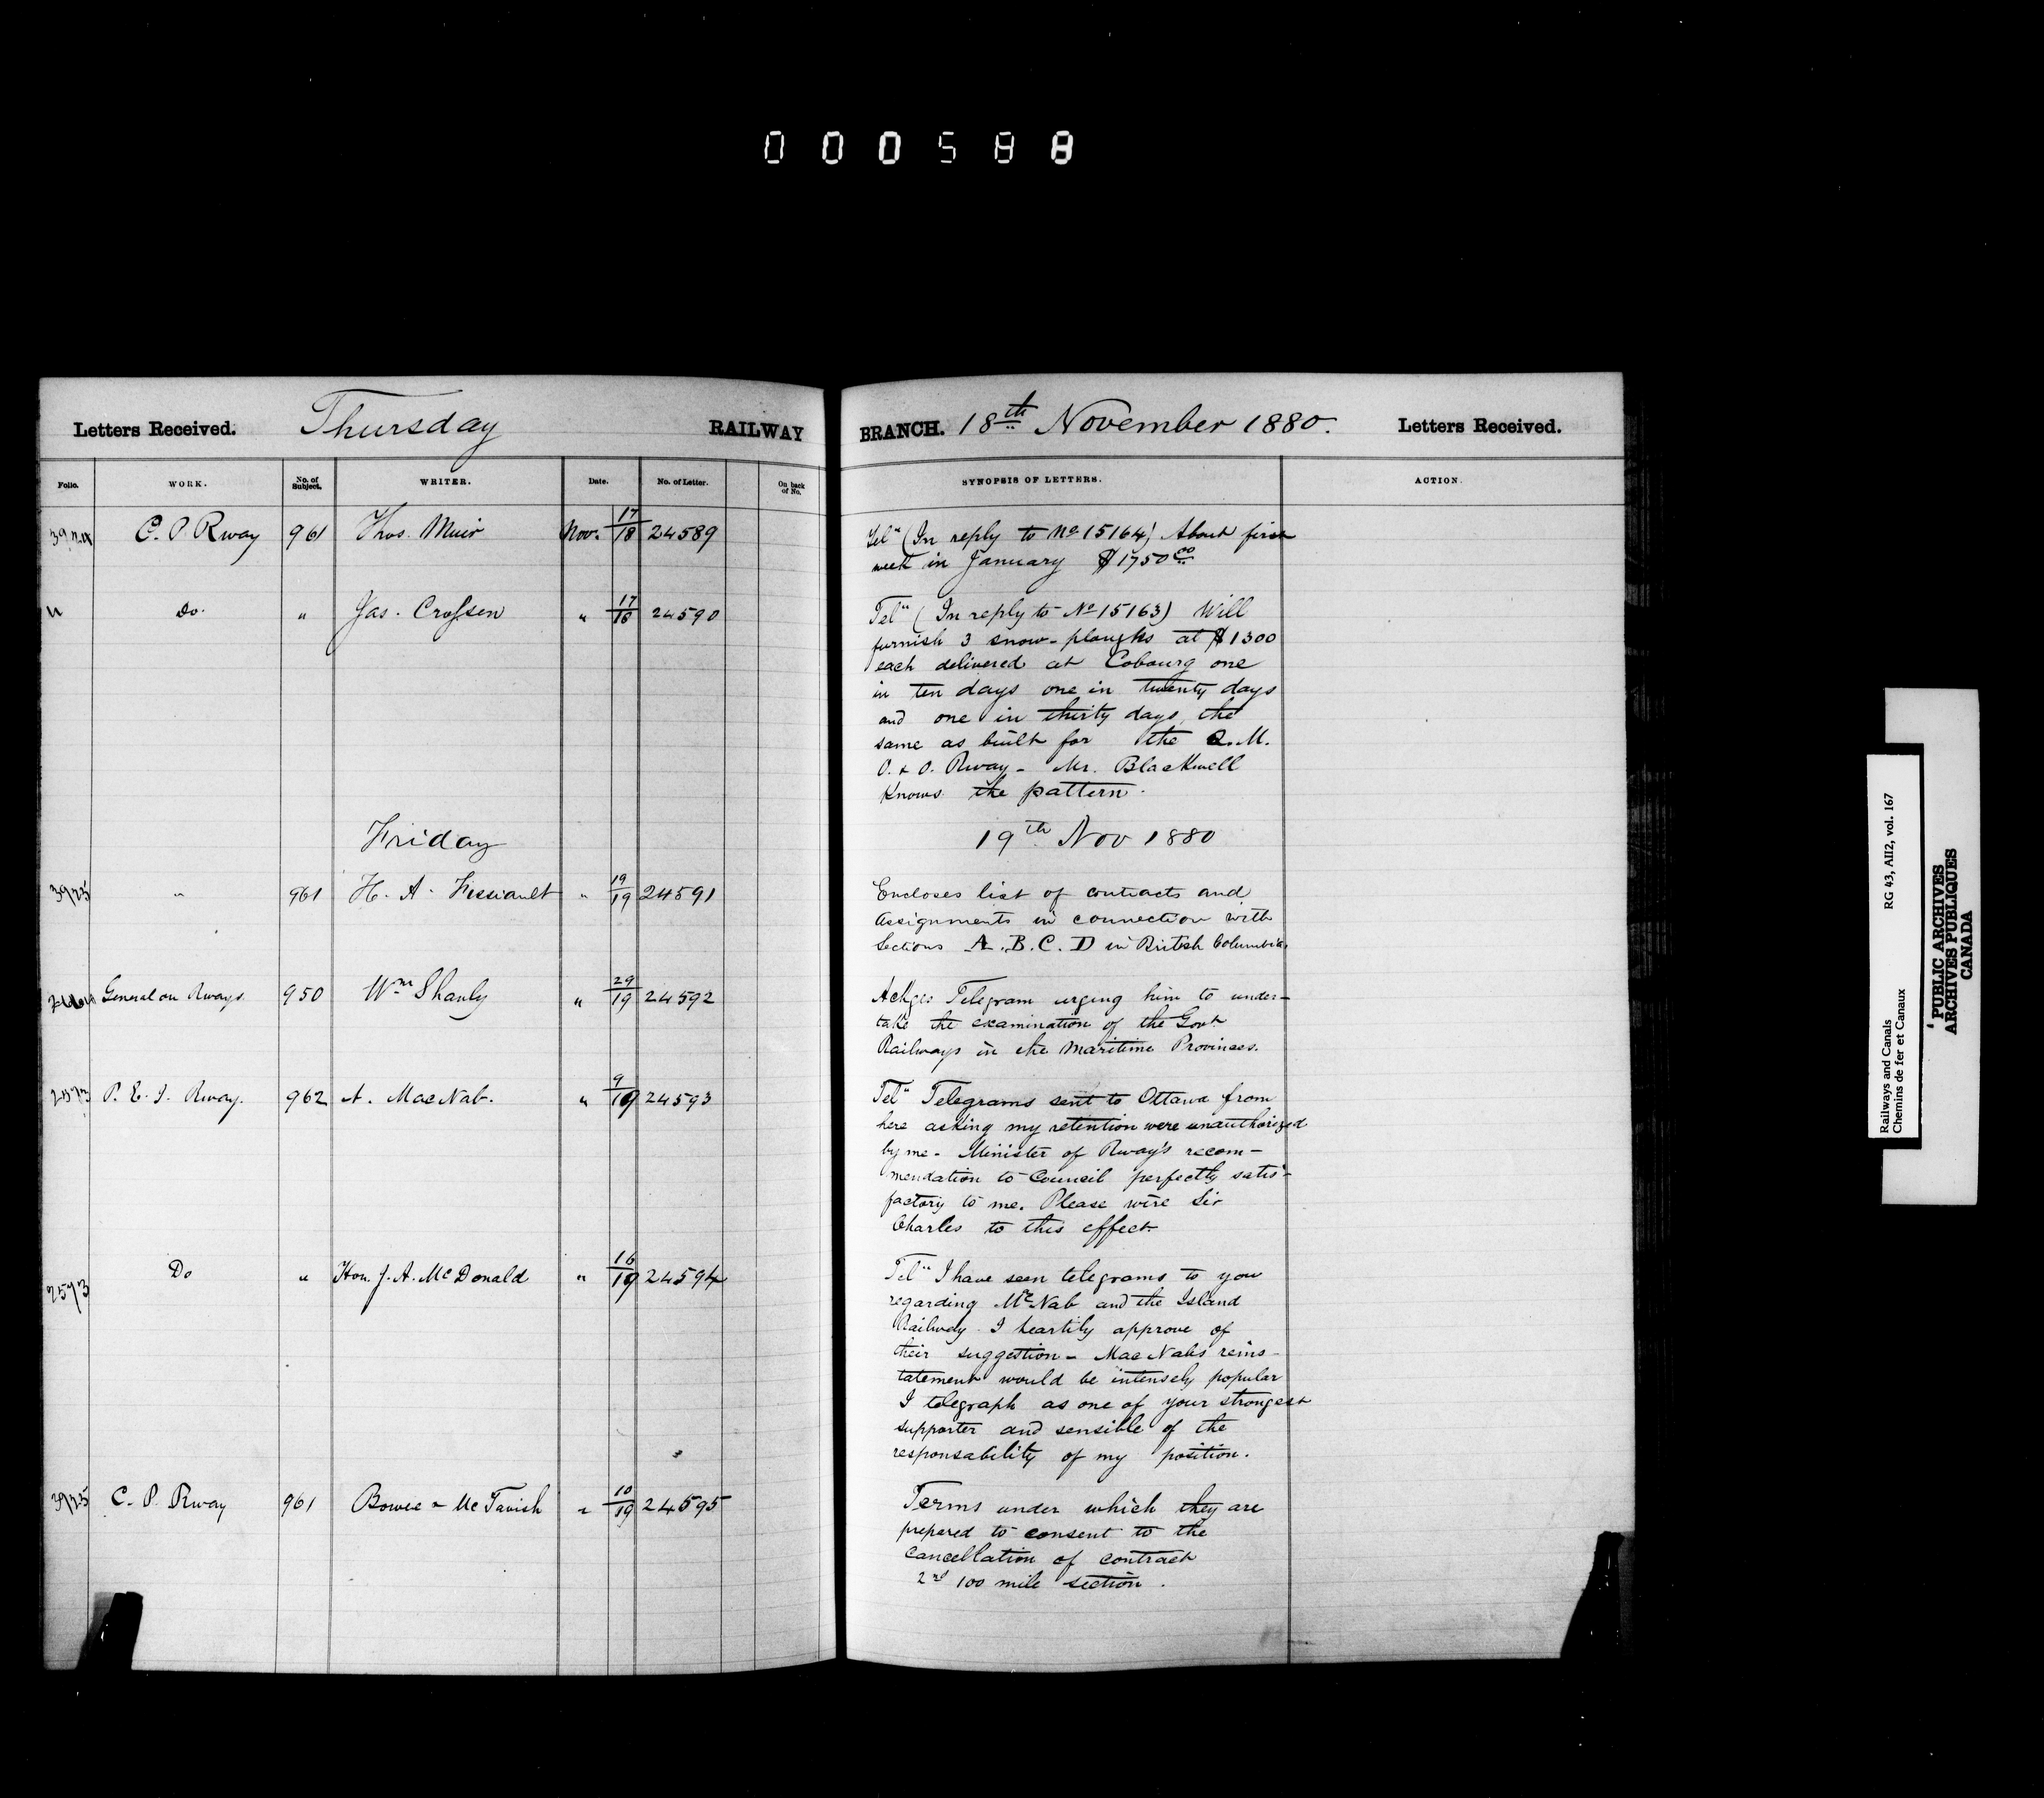 000588
Letters Received. Thursday RAILWAY BRANCH. 18th November 1880. Letters Received.
Folio. WORK. No. of Subject. WRITER. Date. No. of Letter. On back of No. SYNOPSIS OF LETTERS. ACTION.
C. P Rway 961 Thos. Muir Nov. 17/18 24589
Tel" (In reply to No 15164) About first
week in January $1750 00
Do. " Jas. Crossen " 17/18 24590
Tel" (In reply to No 15163) Will
furnish 3 snow-ploughs at $1300
each delivered at Cobourg one
in ten days one in twenty days
and one in thirty days, the
same as built for the Q.M.
O. & O. Rway - Mr. Blackwell
knows the pattern.
Friday 19th Nov 1880
3925 " 961 H. A. Fissiault " 19/19 24591
Encloses list of contracts and
Assignments in connection with
Sections A. B. C. D in British Columbia.
General on Rways 950 Wm Shanly " 29/19 24592
Ackges Telegram urging him to under-
take the examination of the Govt
Railways in the Maritime Provinces.
2573 P. E. I. Rway. 962 A. MacNab. " 9/19 24593
Tel" Telegrams sent to Ottawa from
here asking my retention were unauthorized
by me - Minister of Rway's recom-
mendation to Council perfectly satis-
factory to me. Please wire Sir
Charles to this effect
2573 Do " Hon. J. A. McDonald " 16/19 24594
Tel" I have seen telegrams to you
regarding McNab and the Island
Railway I heartily approve of
their suggestion - MacNabs reins-
tatement would be intensely popular
I telegraph as one of your strongest
supporter and sensible of the
responsability of my position.
3925 C. P. Rway 961 Bowie & McTavish " 10/19 24595
Terms under which they are
prepared to consent to the
cancellation of contract
2nd 100 mile section.
Railways and Canals RG 43, AII2, vol. 167
Chemins de fer et Canaux
PUBLIC ARCHIVES
ARCHIVES PUBLIQUES
CANADA